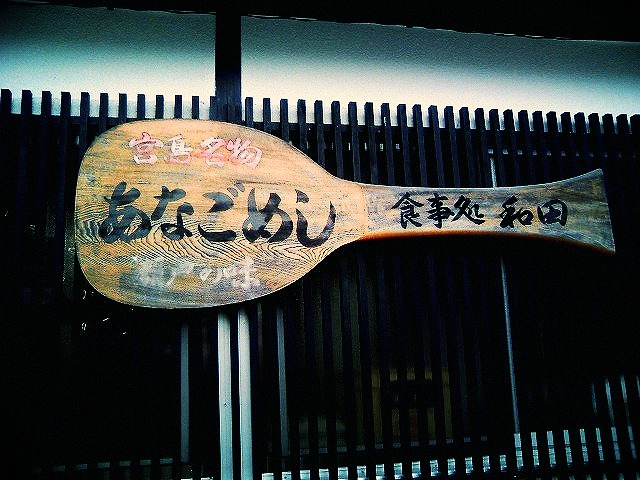 宮島名物
あなごめし
瀬戸の味
食事処 和田